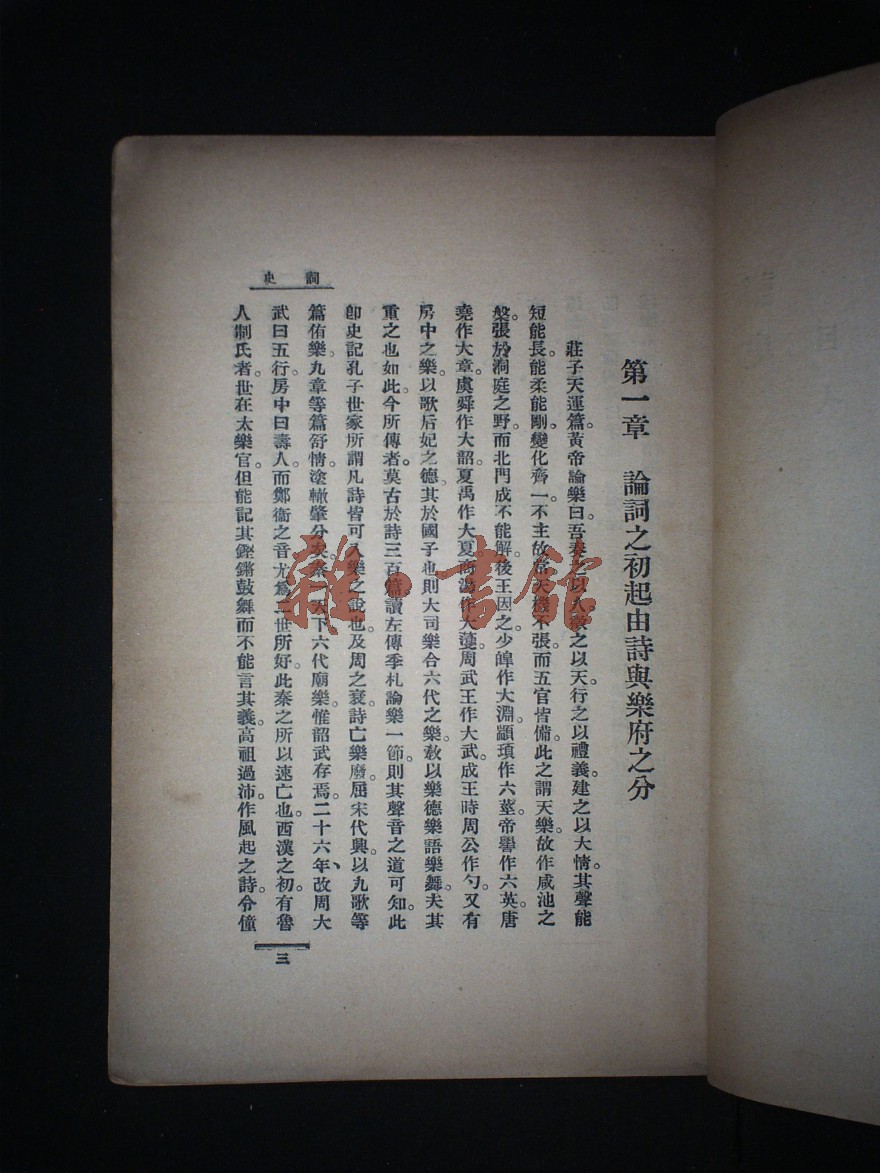 詞史
第一章　論詞之初起由詩與樂府之分
莊子天運篇。黃帝論樂曰。吾奏之以人。徽之以天。行之以禮義。建之以大情。其聲能
短能長。能柔能剛。變化齊一。不主故常。天機不張。而五官皆備。此之謂天樂。故作咸池之
槃。張於洞庭之野。而北門成不能解。後王因之。少皥作大淵。顓頊作六莖。帝嚳作六英。唐
堯作大章。虞舜作大韶。夏禹作大夏。商湯作大濩。周武王作大武。成王時周公作勺。又有
房中之樂。以歌后妃之德。其於國子也。則大司樂合六代之樂。敎以樂德樂語樂舞。夫其
重之也如此。今所傳者。莫古於詩三百篇。讀左傳季札論樂一節。則其聲音之道可知。此
卽史記孔子世家所謂凡詩皆可入樂之說也。及周之衰。詩亡樂廢。屈宋代興。以九歌等
篇侑樂。九章等篇舒情。塗轍肇分。次秦一天下。六代廟樂。惟韶武存焉。二十六年、改周大
武曰五行。房中曰壽人。而鄭衞之音。尤爲二世所好。此秦之所以速亡也。西漢之初。有魯
人制氏者。世在太樂官。但能記其鏗鏘鼓舞而不能言其義。高祖過沛。作風起之詩。令僮
三
雜·書館